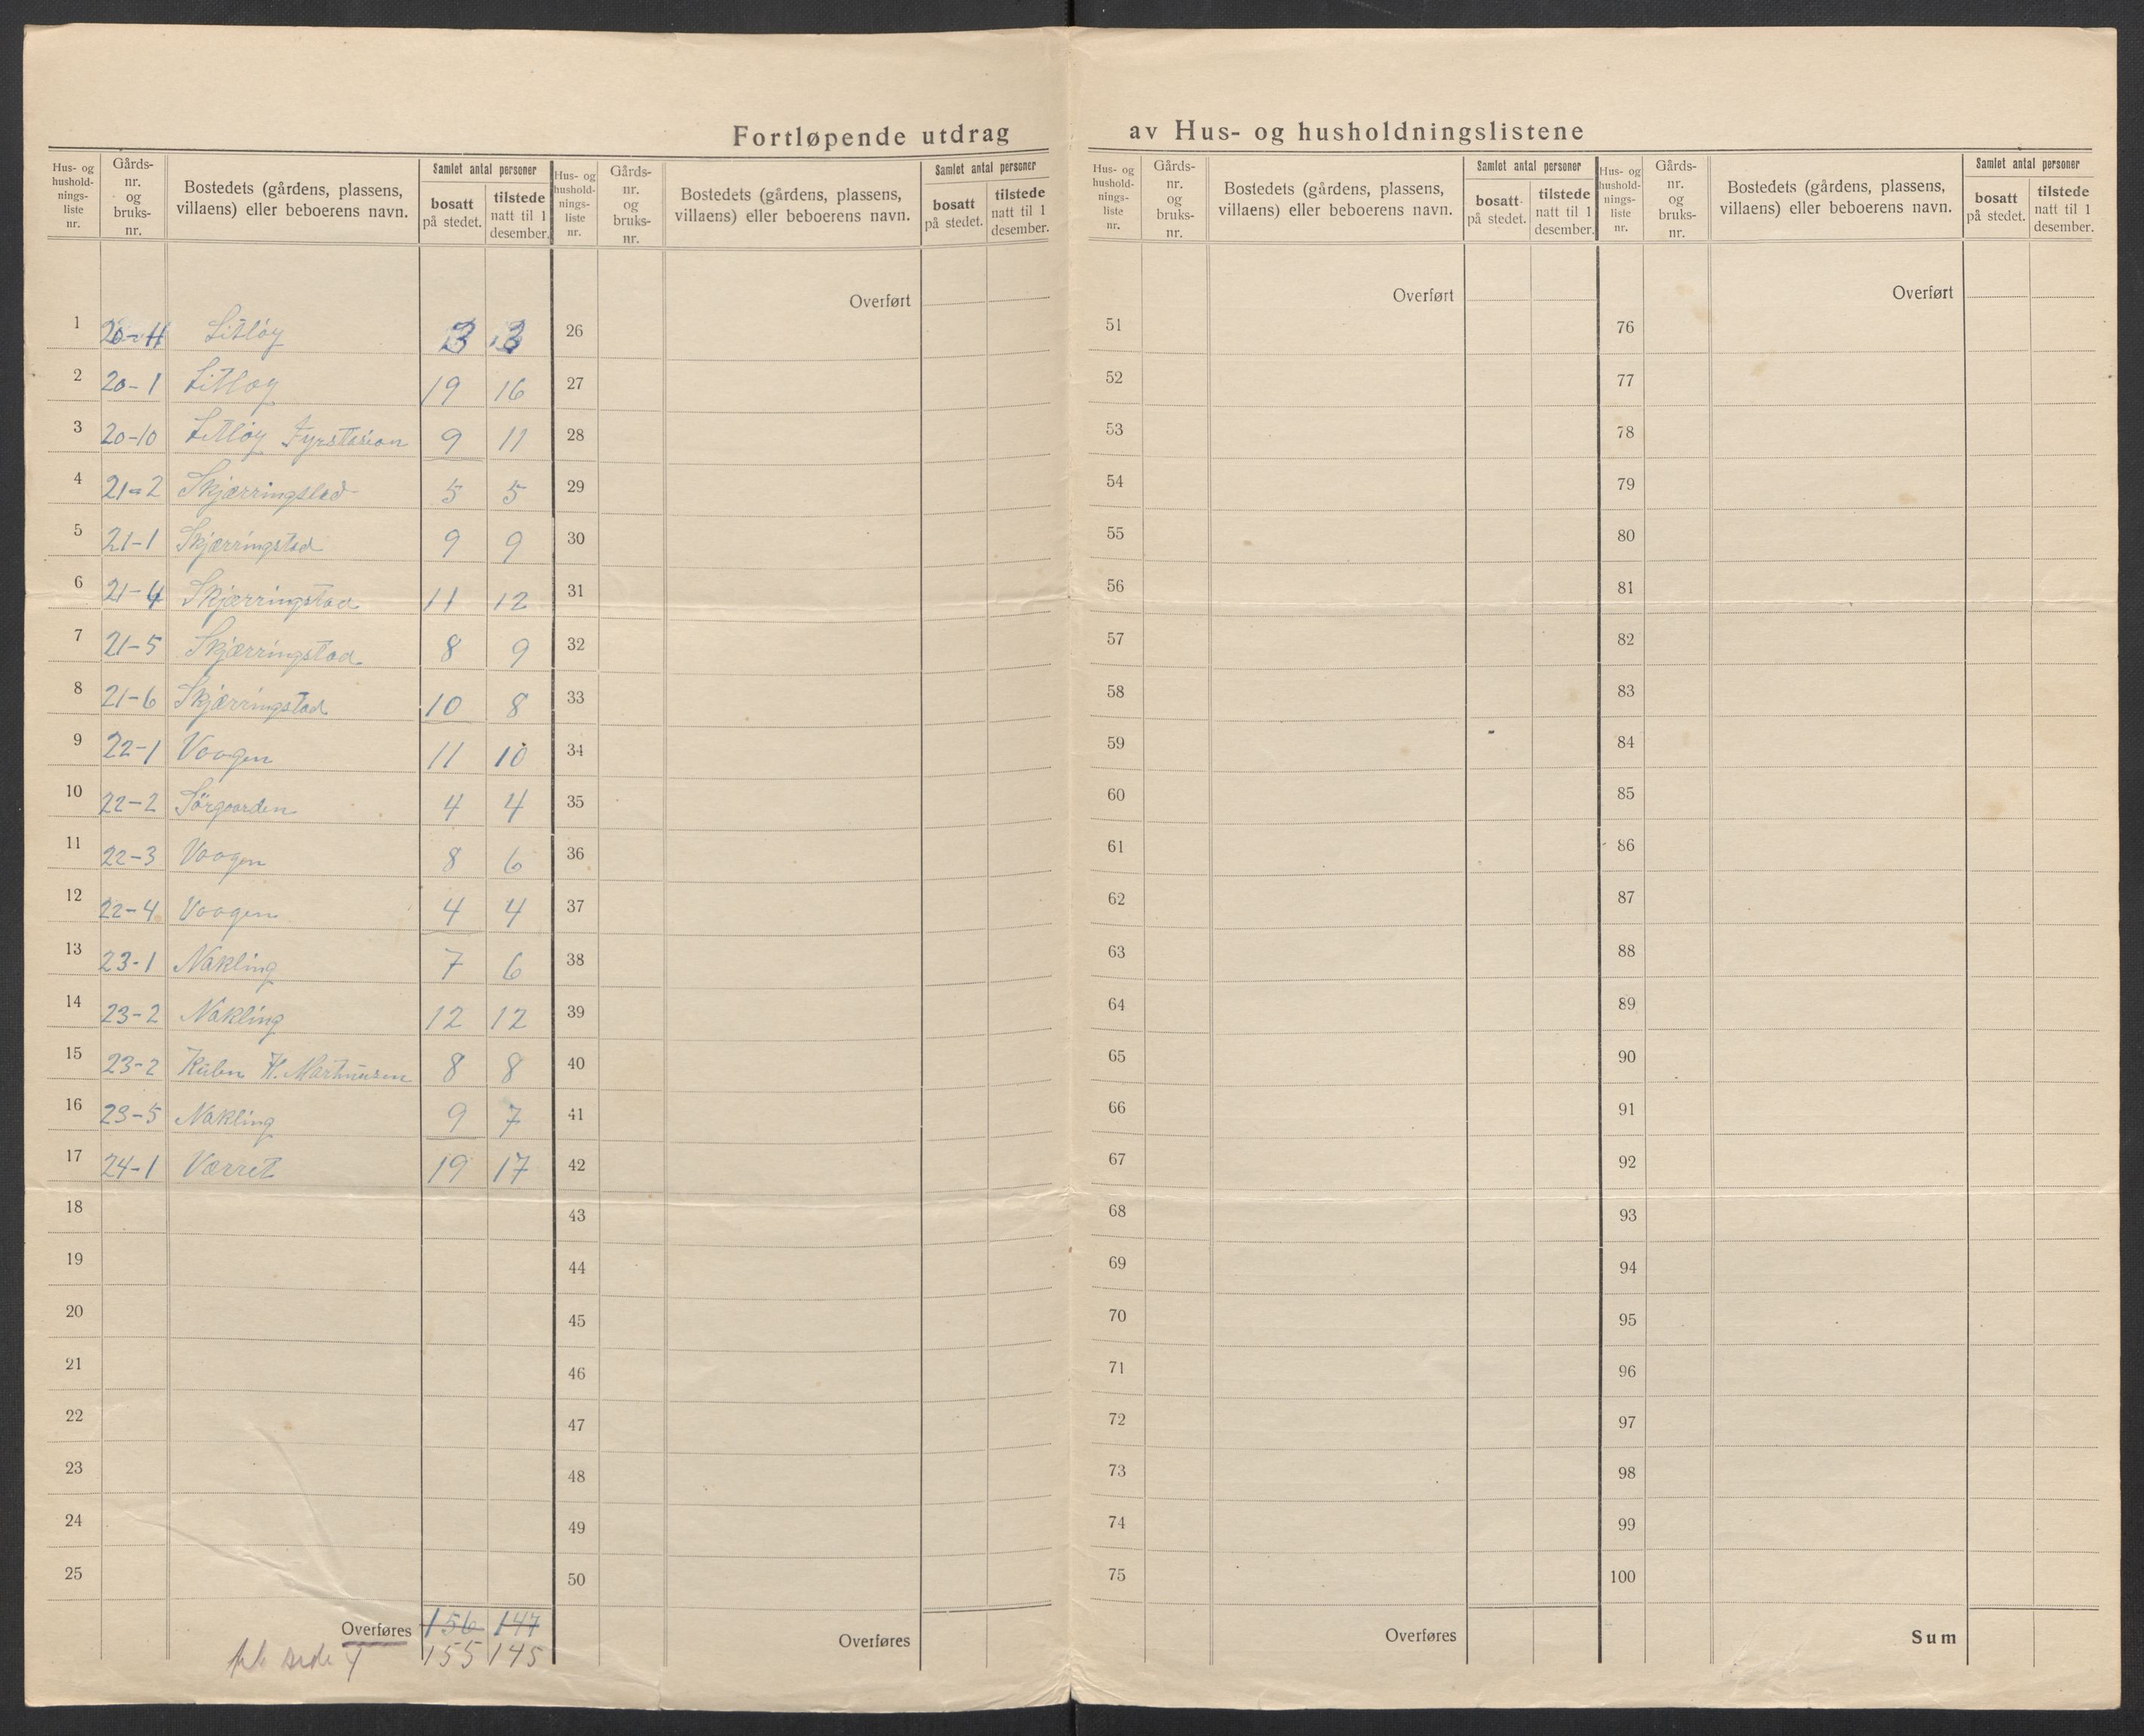 Fortløpende utdrag av Hus- og husholdningslistene
Hus- og hushold- nings- liste nr.
Gårds- nr. og bruks- nr.
Bostedets (gårdens, plassens, villaens) eller beboerens navn.
Samlet antal personer
bosatt på stedet.
tilstede natt til 1 desember.
Hus- og hushold- nings- liste nr.
Gårds- nr. og bruks- nr.
Bostedets (gårdens, plassens, villaens) eller beboerens navn.
Samlet antal personer
bosatt på stedet.
tilstede natt til 1 desember.
Hus- og hushold- nings- liste nr.
Gårds- nr. og bruks- nr.
Bostedets (gårdens, plassens, villaens) eller beboerens navn.
Samlet antal personer
bosatt på stedet.
tilstede natt til 1 desember.
Hus- og hushold- nings- liste nr.
Gårds- nr. og bruks- nr.
Bostedets (gårdens, plassens, villaens) eller beboerens navn.
Samlet antal personer
bosatt på stedet.
tilstede natt til 1 desember.
Overført Overført Overført
1 20-11 Litløy 3 3 26 51 76
2 20-1 Litløy 19 16 27 52 77
3 20-10 Litløy Fyrstasion 9 11 28 53 78
4 21=2 Skjærringstad 5 5 29 54 79
5 21-1 Skjærringstad 9 9 30 55 80
6 21-4 Skjærringstad 11 12 31 56 81
7 21-5 Skjærringstad 8 9 32 57 82
8 21-6 Skjærringstad 10 8 33 58 83
9 22-1 Vaagen 11 10 34 59 84
10 22-2 Sörgaarden 4 4 35 60 85
11 22-3 Vaagen 8 6 36 61 86
12 22-4 Vaagen 4 4 37 62 87
13 23-1 Nakling 7 6 38 63 88
14 23-2 Nakling 12 12 39 64 89
15 23-2 H. Martinusen 8 8 40 65 90
16 23-5 Nakling 9 7 41 66 91
17 24-1 Værret 19 17 42 67 92
18 43 68 93
19 44 69 94
20 45 70 95
21 46 71 96
22 47 72 97
23 48 73 98
24 49 74 99
25 50 75 100
Overføres 156 147 Overføres Overføres Sum
side 155 145